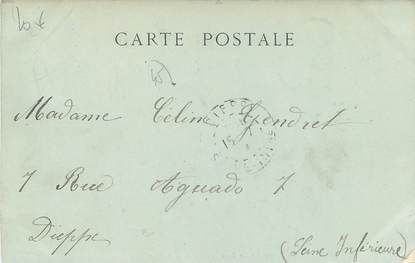 20 €
CARTE POSTALE
Madame Céline Gendret
7 Rue Aguado 7
Dieppe
(Seine Inférieure)